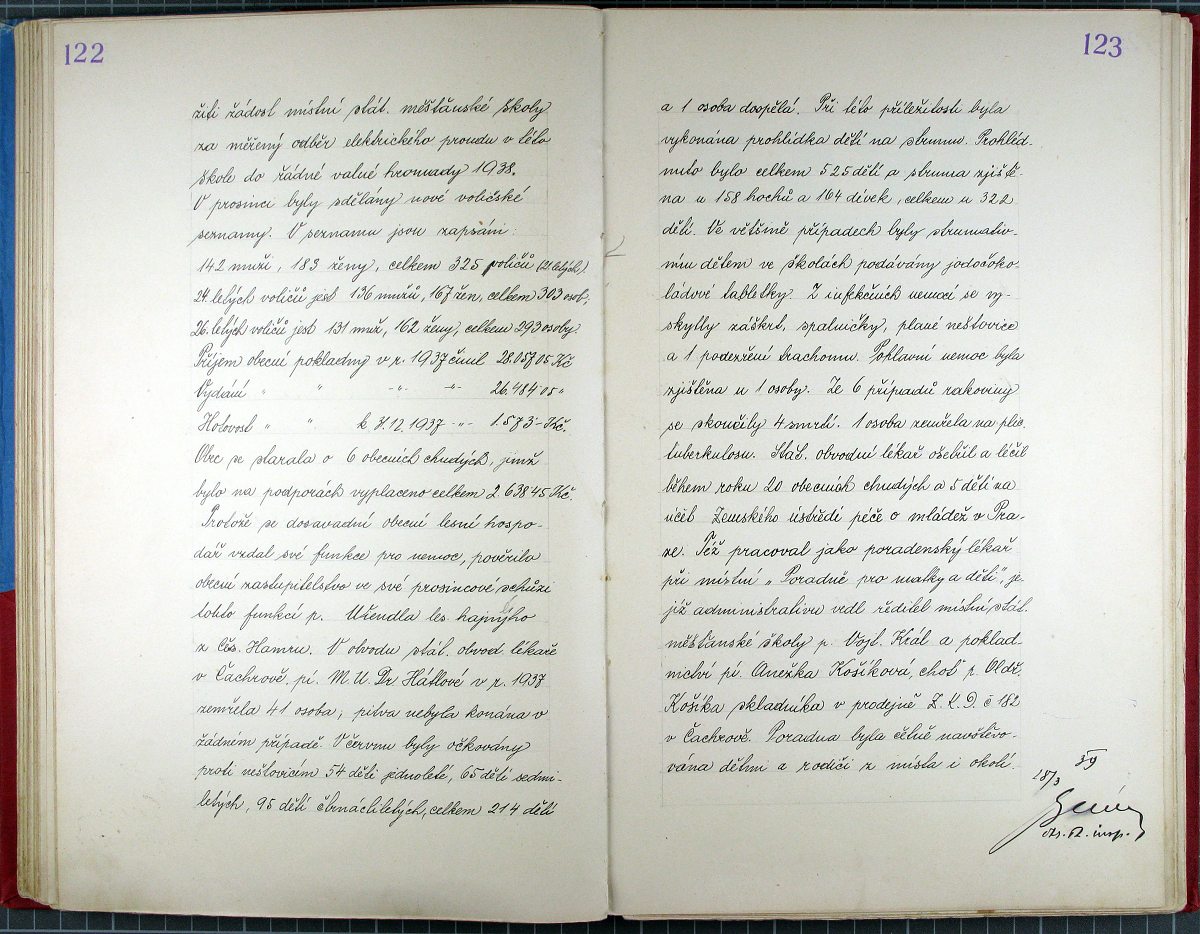 122
žiti žádost místní stát. měšťanské školy
za měřený odběr elektrického proudu v této
škole do řádné valné hromady 1938.
V prosinci byly sdělány nové voličské
seznamy. V seznamu jsou zapsáni:
142 muži, 183 ženy, celkem 325 voličů (21 letých).
24 letých voličů jest 136 mužů, 167 žen, celkem 303 osob,
26. letých voličů jest 131 muž, 162 ženy, celkem 293 osoby.
Příjem obecní pokladny v r. 1937 činil 28.057·05 Kč
Vydání " " -"- -"- 26.484·05 "
Hotovost " " k 31.12.1937 -"- 1.573·- Kč.
Obec se starala o 6 obecních chudých, jimž
bylo na podporách vyplaceno celkem 2.638·45 Kč.
Protože se dosavadní obecní lesní hospo-
dář vzdal své funkce pro nemoc, pověřilo
obecní zastupitelstvo ve své prosincové schůzi
touto funkcí p. Uřendla les. hajného
z Čes. Hamru. V obvodu stát. obvod. lékaře
v Čachrově pí. M.U.Dr Hátlové v r. 1937
zemřela 41 osoba, pitva nebyla konána v
žádném případě. V červnu byly očkovány
proti neštovicím 54 děti jednoleté, 65 dětí sedmi-
letých, 95 dětí čtrnáctiletých, celkem 214 dětí
123
a 1 osoba dospělá. Při této příležitosti byla
vykonána prohlídka dětí na strumu. Prohléd-
nuto bylo celkem 525 dětí a struma zjiště-
na u 158 hochů a 164 dívek, celkem u 322
dětí. Ve většině případech byly strumativ-
ním dětem ve školách podávány jodočoko-
ládové tabletky. Z infekčních nemocí se vy-
skytly záškrt, spalničky, plané neštovice
a 1 podezření trachomu. Pohlavní nemoc byla
zjištěna u 1 osoby. Ze 6 případů rakoviny
se skončily 4 smrtí. 1 osoba zemřela na plic.
tuberkulosu. Stát. obvodní lékař ošetřil a léčil
během roku 20 obecních chudých a 5 dětí na
účet Zemského ústředí péče o mládež v Pra-
ze. Též pracoval jako poradenský lékař
při místní „Poradně pro matky a děti", je-
jíž administrativu vedl ředitel místní stát.
měšťanské školy p. Vojt. Král a poklad-
nictví pí. Anežka Košíková, choť p. Oldř.
Košíka skladníka v prodejně Z.K.D. č 182
v Čachrově. Poradna byla četně navštěvo-
vána dětmi a rodiči z místa i okolí.
18/3 39